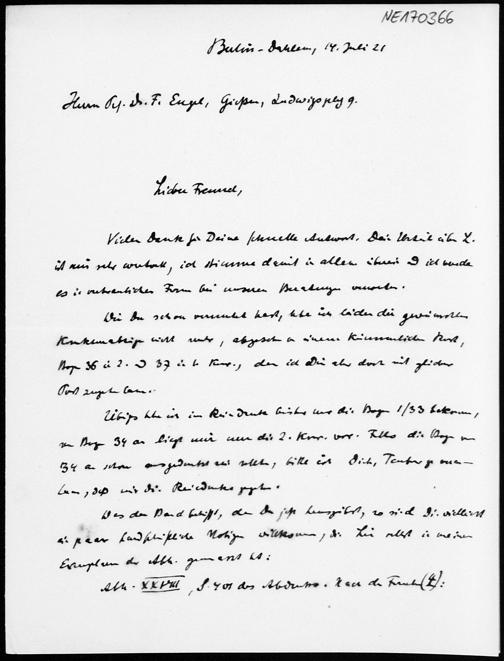 NE170366
Berlin-Dahlem, 14. Juli 21
Herrn Prof. Dr. F. Engel, Gießen, Ludwigsplatz 9.
Lieber Freund,
Vielen Dank für Deine schnelle Antwort. Dein Urteil über L.
ist mir sehr wertvoll, ich stimme damit in allem überein & ich werde
es in vertraulicher Form bei unseren Beratungen verwerten.
Wie Du schon vermutet hast, habe ich leider die gewünschten
Korrekturabzüge nicht mehr, abgesehen von einem kümmerlichen Rest,
Bogen 36 in 2. & 37 in 1. Korr., den ich Dir aber doch mit gleicher
Post zugehen lasse.
Übrigens habe ich im Reindruck bisher nur die Bogen 1/33 bekommen,
von Bogen 34 an liegt mir nur die 2. Korr. vor. Falls die Bogen von
34 an schon ausgedruckt sein sollten, bitte ich Dich, Teubner zu veran-
lassen, daß mir die Reindrucke zugehen.
Was den Band betrifft, den Du jetzt herausgibst, so sind Dir vielleicht
ein paar handschriftliche Notizen willkommen, die Lie selbst in meinen
Exemplaren der Abh. gemacht hat:
Abh. XXVIII, S. 401 des Abdrucks. Nach der Formel (4):